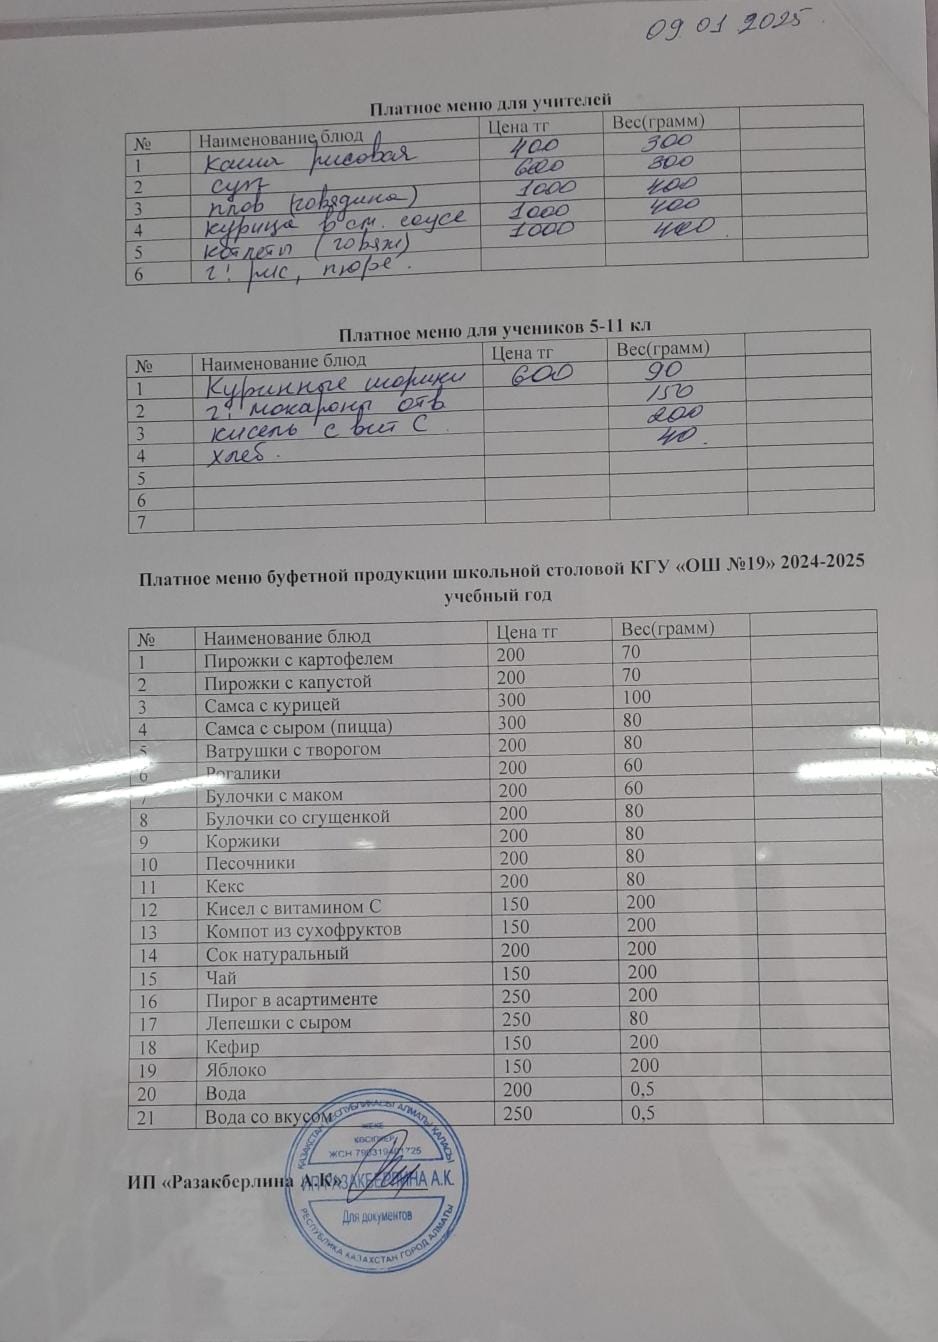 09 01 2025
Платное меню для учителей
№ Наименование блюд Цена тг Вес(грамм)
1 каша рисовая 400 300
2 суп 600 300
3 плов (говядина) 1000 400
4 курица в см. соусе 1000 400
5 котлеты (говяж) 1000 400
6 г! рис, пюре.
Платное меню для учеников 5-11 кл
№ Наименование блюд Цена тг Вес(грамм)
1 Куринные шорики 600 90
2 г! мокароны отв 150
3 кисель с вит С 200
4 хлеб. 40.
5
6
7
Платное меню буфетной продукции школьной столовой КГУ «ОШ №19» 2024-2025
учебный год
№ Наименование блюд Цена тг Вес(грамм)
1 Пирожки с картофелем 200 70
2 Пирожки с капустой 200 70
3 Самса с курицей 300 100
4 Самса с сыром (пицца) 300 80
5 Ватрушки с творогом 200 80
6 Рогалики 200 60
7 Булочки с маком 200 60
8 Булочки со сгущенкой 200 80
9 Коржики 200 80
10 Песочники 200 80
11 Кекс 200 80
12 Кисел с витамином С 150 200
13 Компот из сухофруктов 150 200
14 Сок натуральный 200 200
15 Чай 150 200
16 Пирог в асартименте 250 200
17 Лепешки с сыром 250 80
18 Кефир 150 200
19 Яблоко 150 200
20 Вода 200 0,5
21 Вода со вкусом 250 0,5
ҚАЗАҚСТАН РЕСПУБЛИКАСЫ АЛМАТЫ ҚАЛАСЫ
ЖЕКЕ
КӘСІПКЕР
ЖСН 790319401725
ИП «Разакберлина А.К»
ИП РАЗАКБЕРЛИНА А.К.
Для документов
РЕСПУБЛИКА КАЗАХСТАН ГОРОД АЛМАТЫ